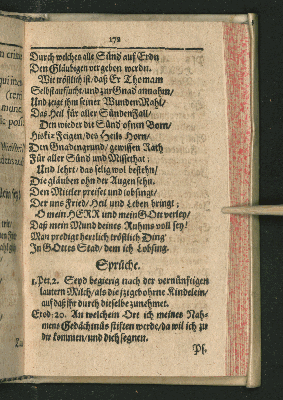 172
Durch welches alle Sünd auff Erdn
Den Gläubigen vergeben werdn.
Wie tröstlich ist/ daß Er Thomam
Selbst auffsucht/ und zur Gnad annahm/
Und zeigt ihm seiner Wunden Mahl/
Das Heil für aller Sünden Fall/
Den wieder die Sünd ofnen Born/
Hiskiæ Feigen/ des Heils Horn/
Den Gnadengrund/ gewissen Rath
Für aller Sünd und Missethat:
Und lehrt/ das selig wol bestehn/
Die gläuben ohn der Augen sehn.
Den Mitler preiset und lobsingt/
Der uns Fried/ Heil und Leben bringt;
O mein HERR und mein Gott verley/
Daß mein Mund deines Ruhms voll sey!
Man predigt herrlich tröstlich Ding
In GOttes Stad/ dem ich Lobsing.
Sprüche.
1. Pet. 2. Seyd begierig nach der vernünftigen
lautern Milch/ als die itzigebohrne Kindelein/
auf daß ihr durch dieselbe zunehmet.
Exod. 20. An welchem Ort ich meines Nah-
mens Gedächtnüs stiften werde/ da wil ich zu
dir kommen/ und dich segnen.
Ps.